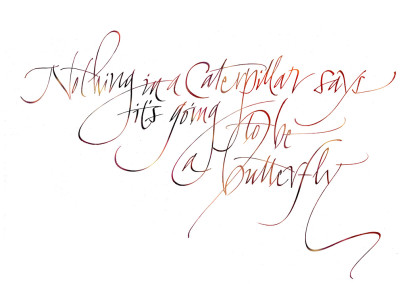 Nothing in a Caterpillar says
it's going to be
a butterfly